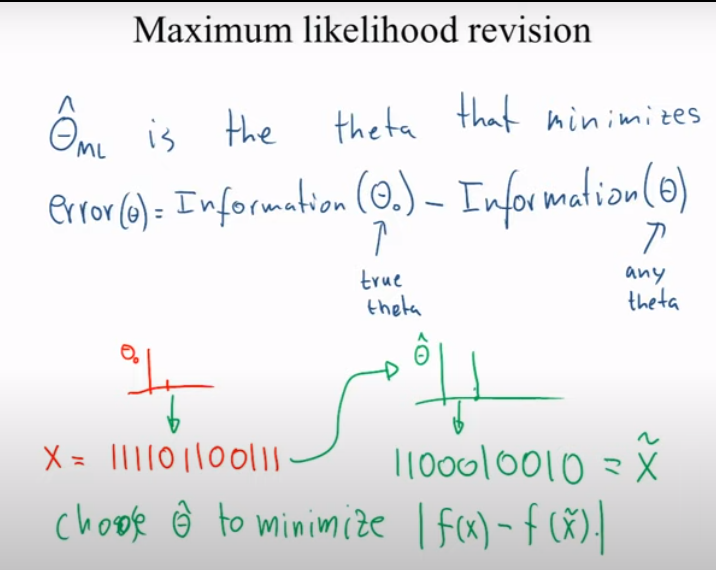 Maximum likelihood revision
Θ̂ML is the theta that minimizes
error(θ) = Information(Θ₀) – Information(Θ)
true
theta
any
theta
Θ₀
Θ̂
X = 111101100111
1100010010 = X̃
choose Θ̂ to minimize |f(x) - f(x̃).|